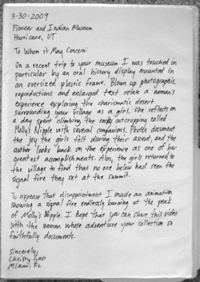 3-30-2009
Pioneer and Indian Museum
Hurricane, UT
To Whom it May Concern:
On a recent trip to your museum I was touched in
particular by an oral history display mounted in
an oversized plastic frame. Blown up photographic
reproductions and enlarged text relate a woman's
experience exploring the charismatic desert
surrounding your village as a girl. She reflects on
a day spent climbing the rocky outcropping called
Molly's Nipple with several companions. Photos document
the joy the girls felt during their ascent, and the
author looks back on the experience as one of her
greatest accomplishments. Alas, the girls returned to
the village to find that no one below had seen the
signal fire they set at the summit.
To appease that disappointment I made an animation
showing a signal fire endlessly burning at the peak
of Molly's Nipple. I hope that you can share this video
with the woman whose adventure your collection so
faithfully documents.
Sincerely,
Christy
Miami, FL